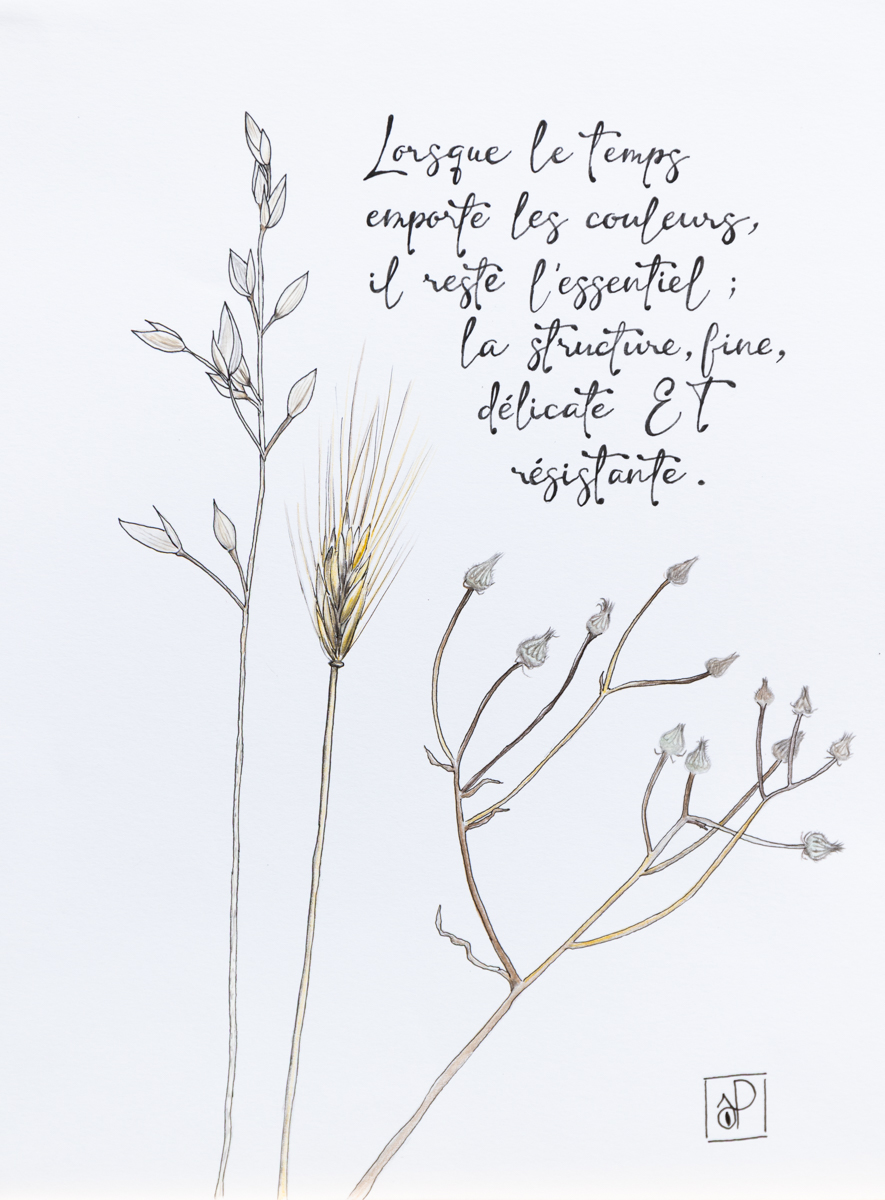 Lorsque le temps
emporte les couleurs,
il reste l'essentiel ;
la structure, fine,
délicate ET
résistante.